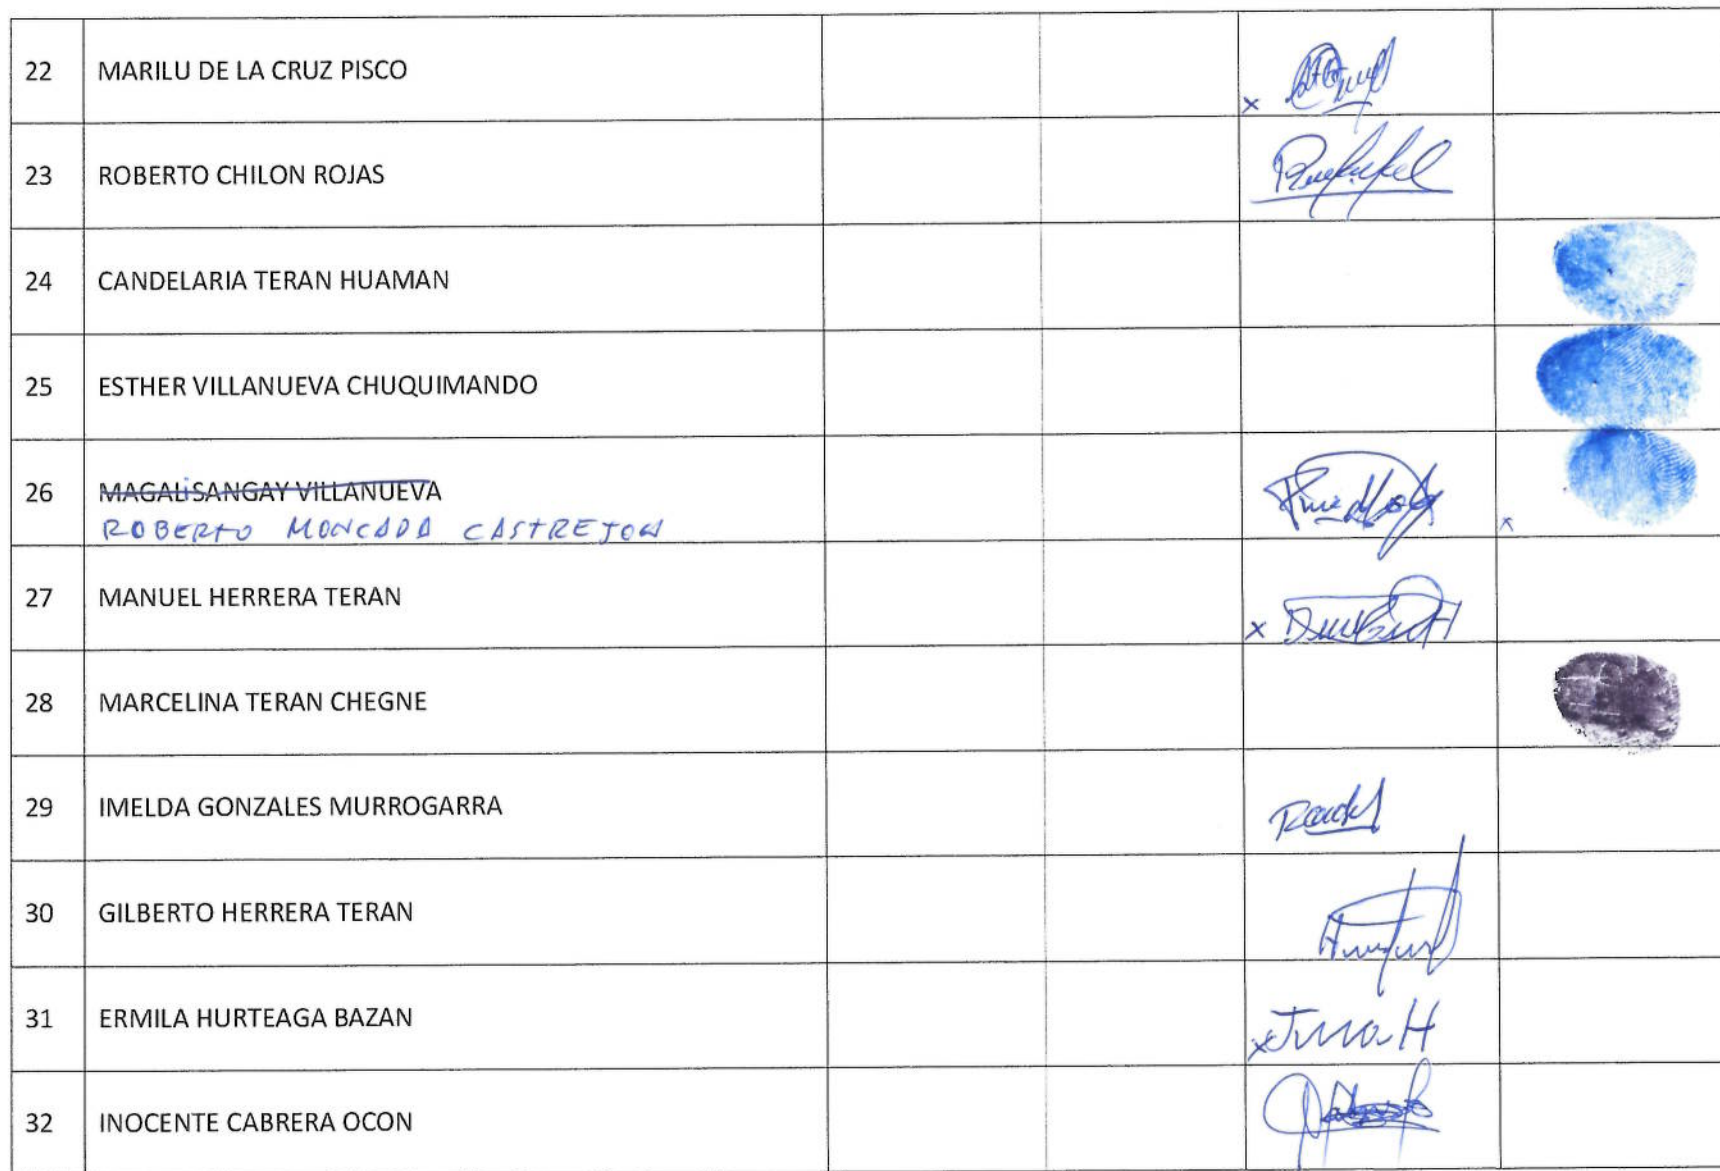 22 MARILU DE LA CRUZ PISCO
x
23 ROBERTO CHILON ROJAS
24 CANDELARIA TERAN HUAMAN
25 ESTHER VILLANUEVA CHUQUIMANDO
26 MAGALI SANGAY VILLANUEVA
ROBERTO MONCADA CASTREJON
27 MANUEL HERRERA TERAN
x
28 MARCELINA TERAN CHEGNE
29 IMELDA GONZALES MURROGARRA
30 GILBERTO HERRERA TERAN
31 ERMILA HURTEAGA BAZAN
x
32 INOCENTE CABRERA OCON